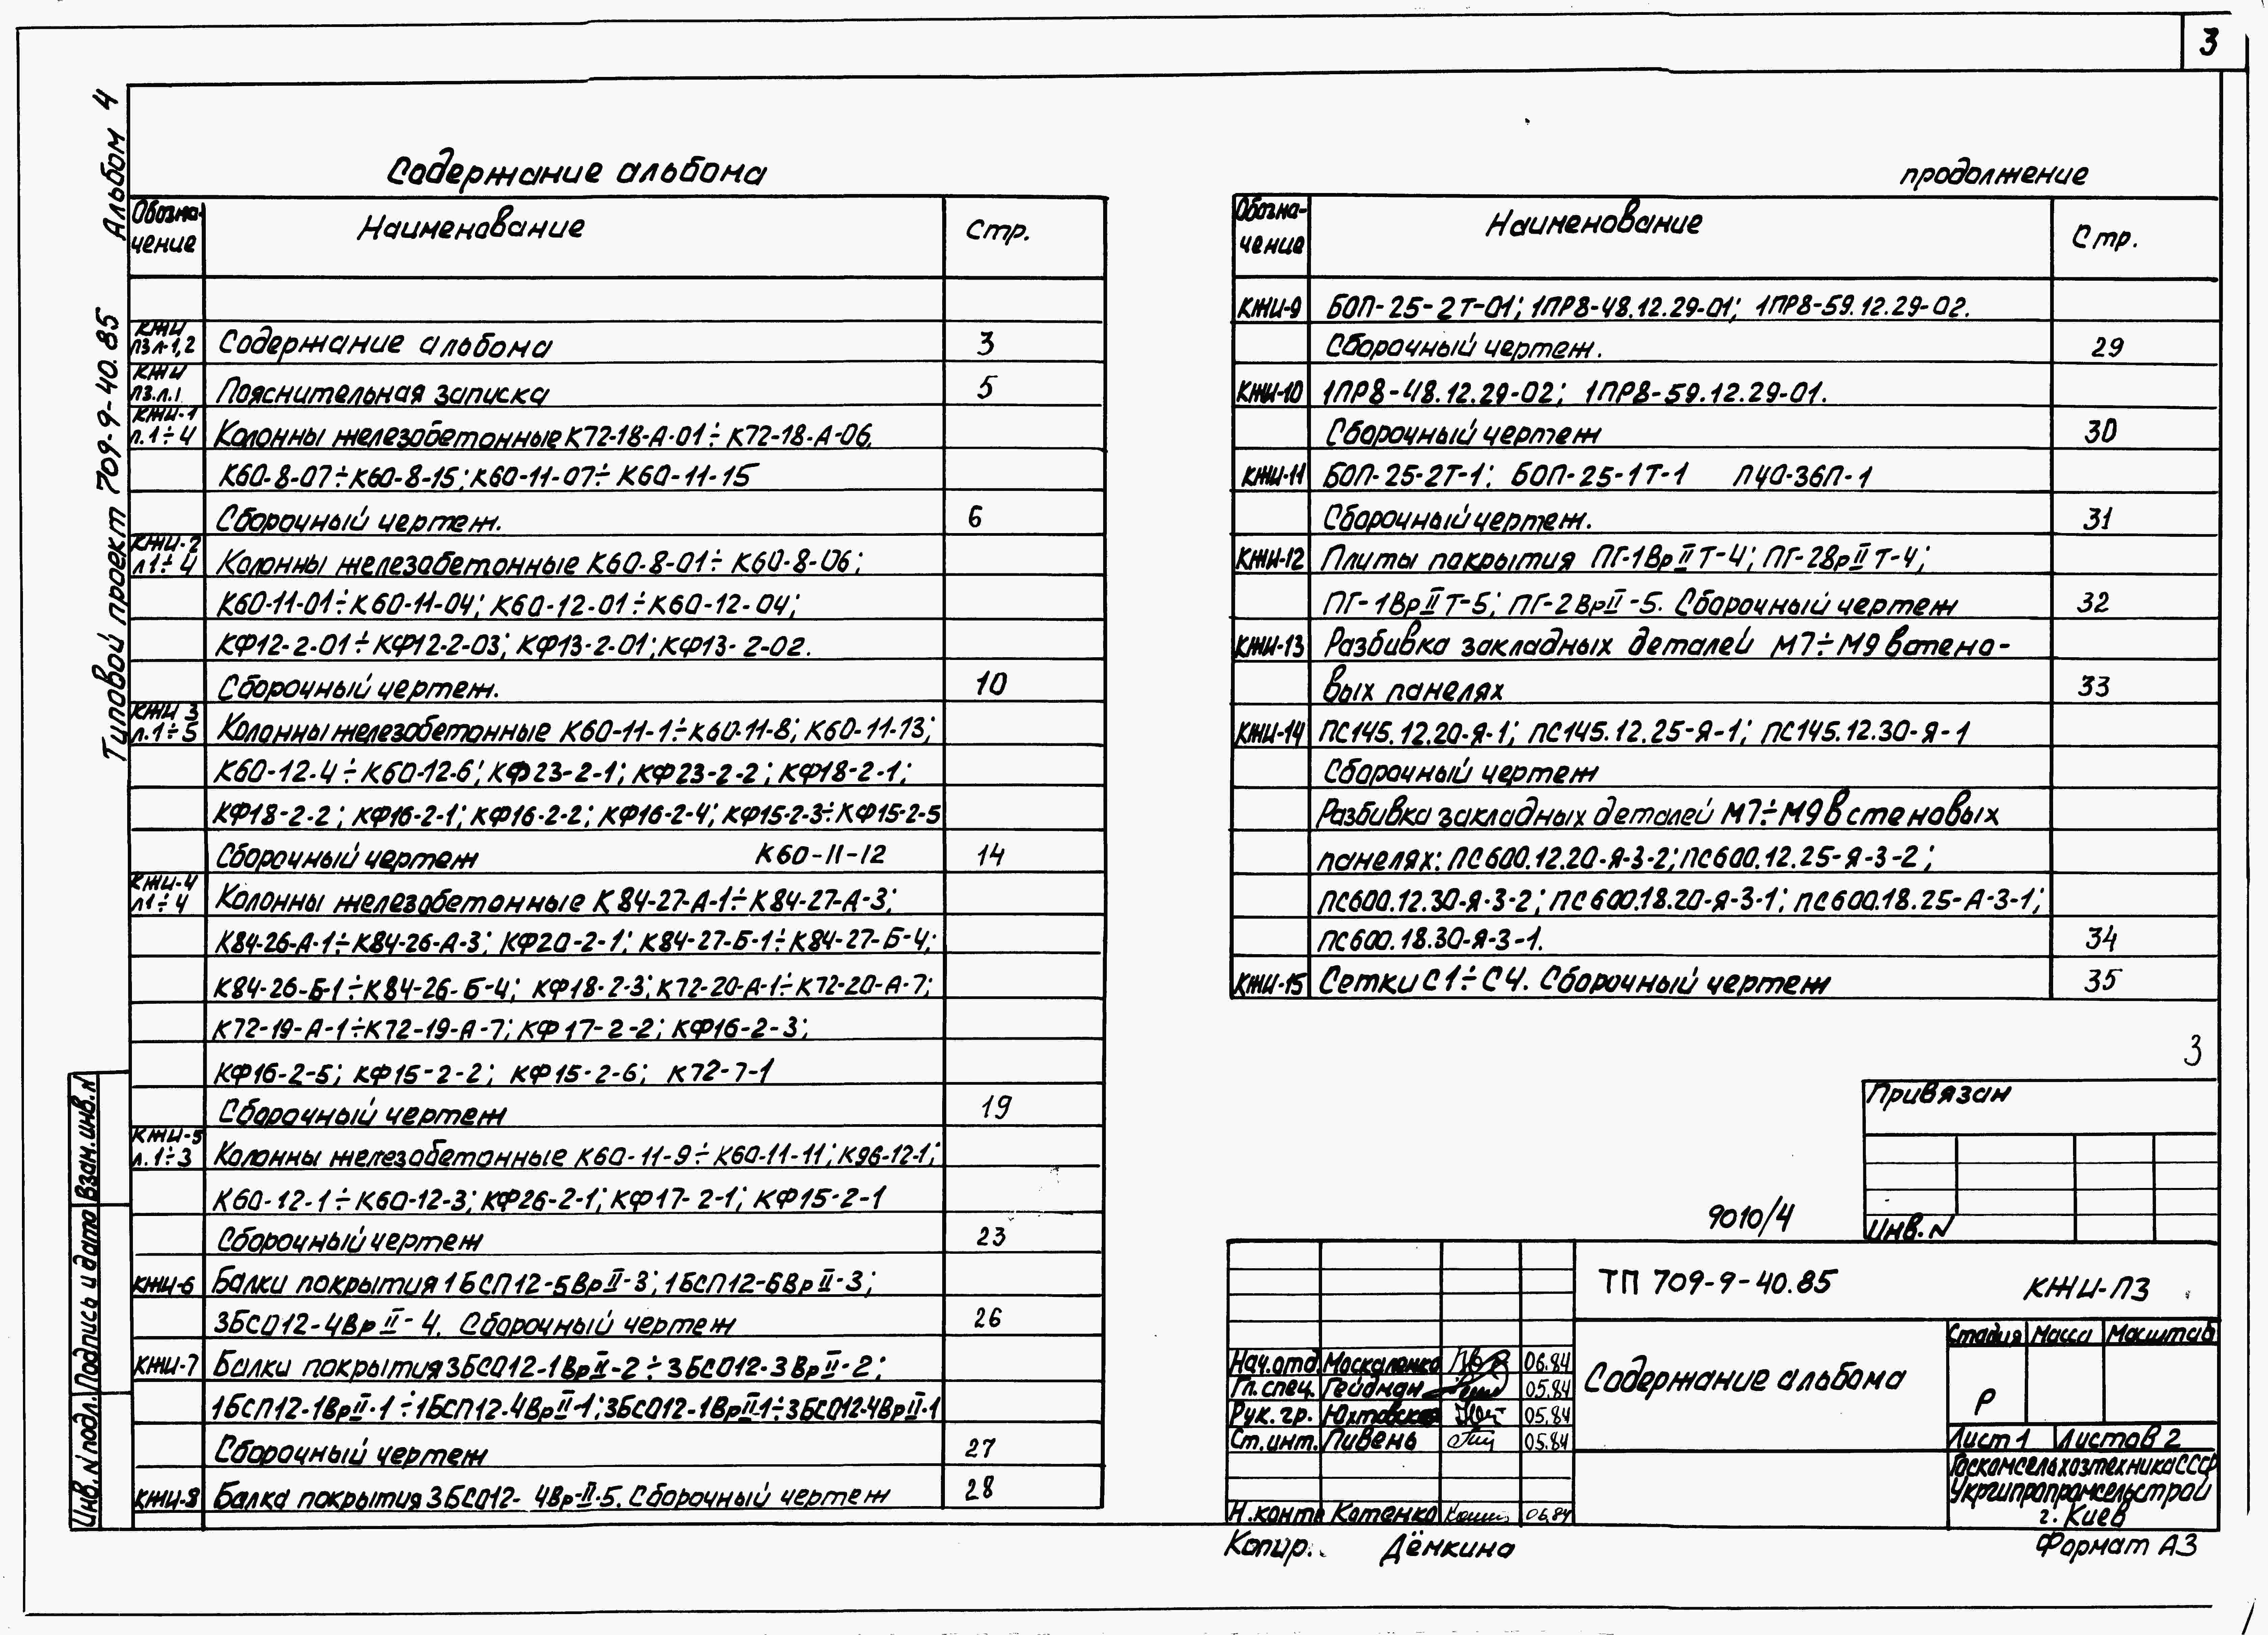 3
Типовой проект 709-9-40.85 Альбом 4
Содержание альбома
Обозна-чение Наименование Стр.
КЖИ ПЗ л.1,2 Содержание альбома 3
КЖИ ПЗ.л.1 Пояснительная записка 5
КЖИ-1 л.1÷4 Колонны железобетонные К72-18-А-01÷К72-18-А-06,
К60-8-07÷К60-8-15; К60-11-07÷К60-11-15
Сборочный чертеж. 6
КЖИ-2 л1÷4 Колонны железобетонные К60-8-01÷К60-8-06;
К60-11-01÷К60-11-04; К60-12-01÷К60-12-04;
КФ12-2-01÷КФ12-2-03; КФ13-2-01; КФ13-2-02.
Сборочный чертеж. 10
КЖИ 3 л.1÷5 Колонны железобетонные К60-11-1÷К60-11-8; К60-11-13;
К60-12-4÷К60-12-6; КФ23-2-1; КФ23-2-2; КФ18-2-1;
КФ18-2-2; КФ16-2-1; КФ16-2-2; КФ16-2-4; КФ15-2-3÷КФ15-2-5
Сборочный чертеж К60-11-12 14
КЖИ-4 л1÷4 Колонны железобетонные К84-27-А-1÷К84-27-А-3;
К84-26-А-1÷К84-26-А-3; КФ20-2-1; К84-27-Б-1÷К84-27-Б-4;
К84-26-Б-1÷К84-26-Б-4; КФ18-2-3; К72-20-А-1÷К72-20-А-7;
К72-19-А-1÷К72-19-А-7; КФ17-2-2; КФ16-2-3;
КФ16-2-5; КФ15-2-2; КФ15-2-6; К72-7-1
Сборочный чертеж 19
КЖИ-5 л.1÷3 Колонны железобетонные К60-11-9÷К60-11-11; К96-12-1;
К60-12-1÷К60-12-3; КФ26-2-1; КФ17-2-1; КФ15-2-1
Сборочный чертеж 23
КЖИ-6 Балки покрытия 1БСП12-5ВрII-3; 1БСП12-6ВрII-3;
3БСО12-4ВрII-4. Сборочный чертеж 26
КЖИ-7 Балки покрытия 3БСО12-1ВрII-2÷3БСО12-3ВрII-2;
1БСП12-1ВрII-1÷1БСП12-4ВрII-1; 3БСО12-1ВрII-1÷3БСО12-4ВрII-1
Сборочный чертеж 27
КЖИ-8 Балка покрытия 3БСО12-4Вр-II-5. Сборочный чертеж 28
Инв.N подл. Подпись и дата Взам.инв.N
продолжение
Обозна-чение Наименование Стр.
КЖИ-9 БОП-25-2Т-01; 1ПР8-48.12.29-01; 1ПР8-59.12.29-02.
Сборочный чертеж. 29
КЖИ-10 1ПР8-48.12.29-02; 1ПР8-59.12.29-01.
Сборочный чертеж 30
КЖИ-11 БОП-25-2Т-1; БОП-25-1Т-1 П40-36П-1
Сборочный чертеж. 31
КЖИ-12 Плиты покрытия ПГ-1ВрIIТ-4; ПГ-2ВрIIТ-4;
ПГ-1ВрIIТ-5; ПГ-2ВрII-5. Сборочный чертеж 32
КЖИ-13 Разбивка закладных деталей М7÷М9 в стено-
вых панелях 33
КЖИ-14 ПС145.12.20-Я-1; ПС145.12.25-Я-1; ПС145.12.30-Я-1
Сборочный чертеж
Разбивка закладных деталей М7÷М9 в стеновых
панелях: ПС600.12.20-Я-3-2; ПС600.12.25-Я-3-2;
ПС600.12.30-Я-3-2; ПС600.18.20-Я-3-1; ПС600.18.25-А-3-1;
ПС600.18.30-Я-3-1. 34
КЖИ-15 Сетки С1÷С4. Сборочный чертеж 35
3
Привязан
Инв.N
9010/4
ТП 709-9-40.85 КЖИ-ПЗ
Содержание альбома
Стадия Масса Масштаб
Р
Лист 1 Листов 2
Госкомсельхозтехника СССР
Укргипропромсельстрой
г. Киев
Нач.отд. Москаленко 06.84
Гл. спец. Гейдман 05.84
Рук. гр. 05.84
Ст. инт. Пивень 05.84
Н. контр Котенко 06.84
Копир. Дёмкина Формат А3